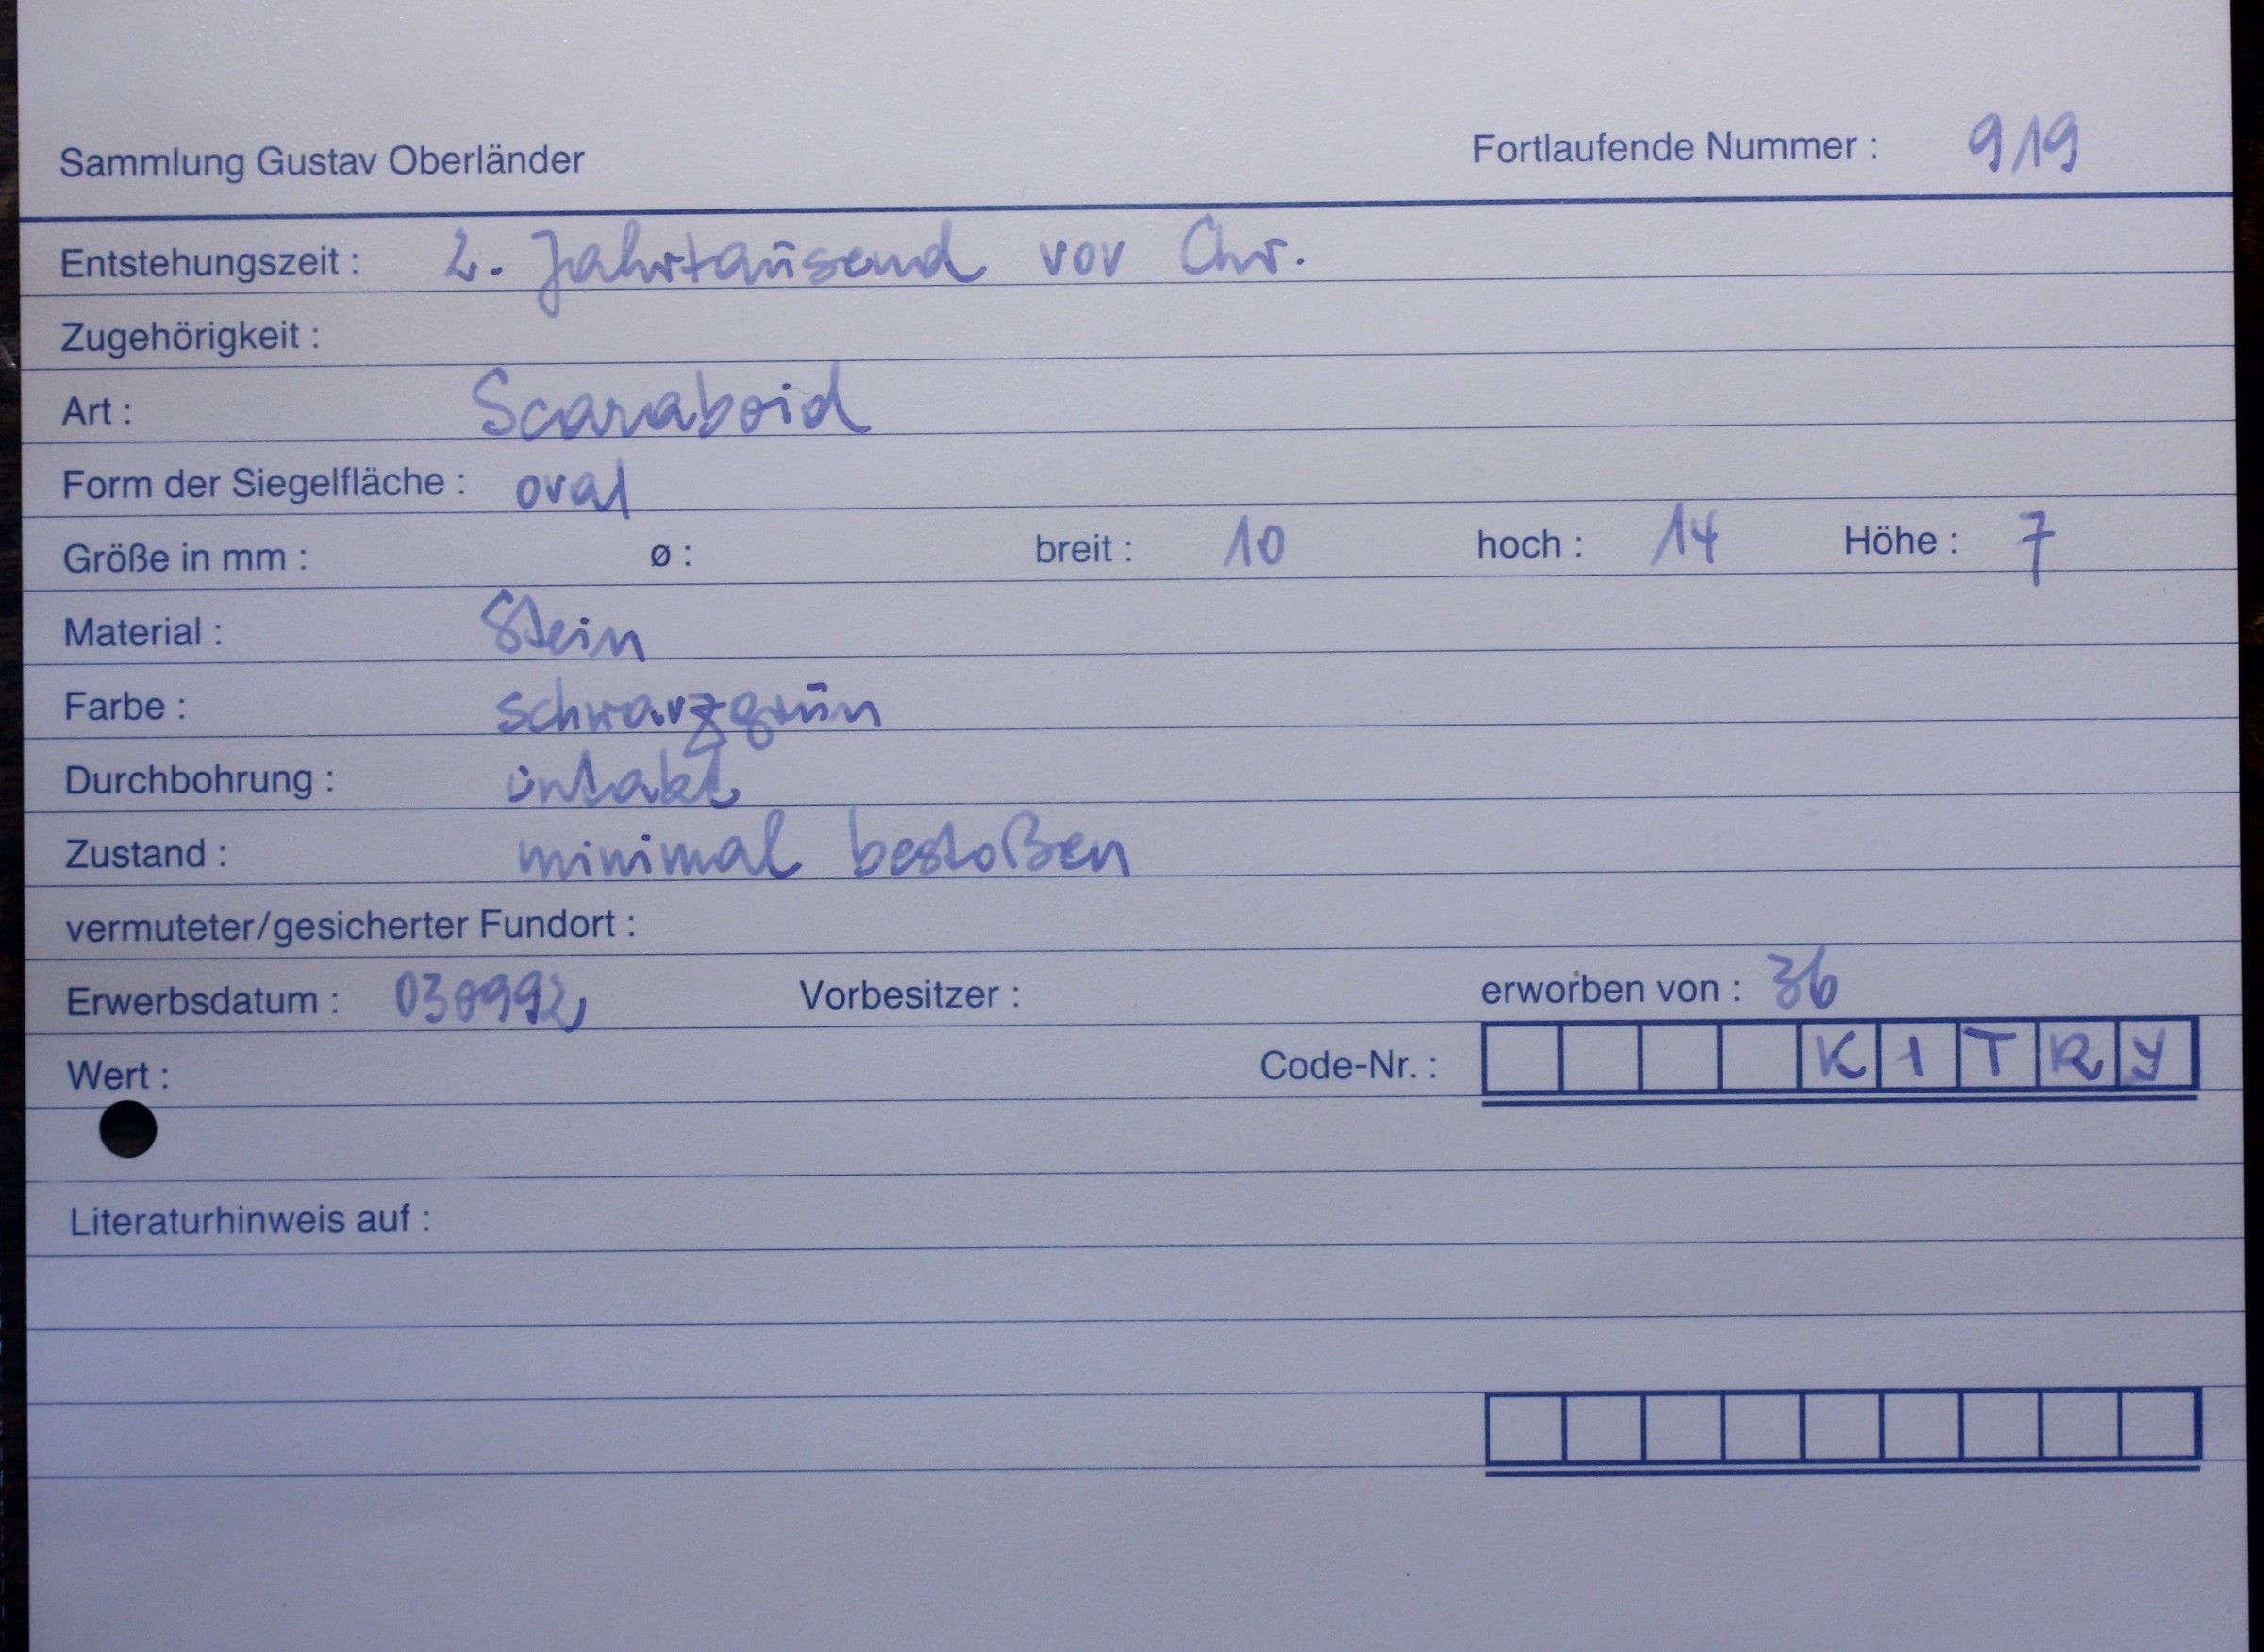 Sammlung Gustav Oberländer Fortlaufende Nummer : 919
Entstehungszeit : 2. Jahrtausend vor Chr.
Zugehörigkeit :
Art : Scaraboid
Form der Siegelfläche : oval
Größe in mm : ø : breit : 10 hoch : 14 Höhe : 7
Material : Stein
Farbe : schwarzgrün
Durchbohrung : intakt
Zustand : minimal bestoßen
vermuteter/gesicherter Fundort :
Erwerbsdatum : Vorbesitzer : erworben von : 36
Wert : Code-Nr. : K I T R Y
Literaturhinweis auf :